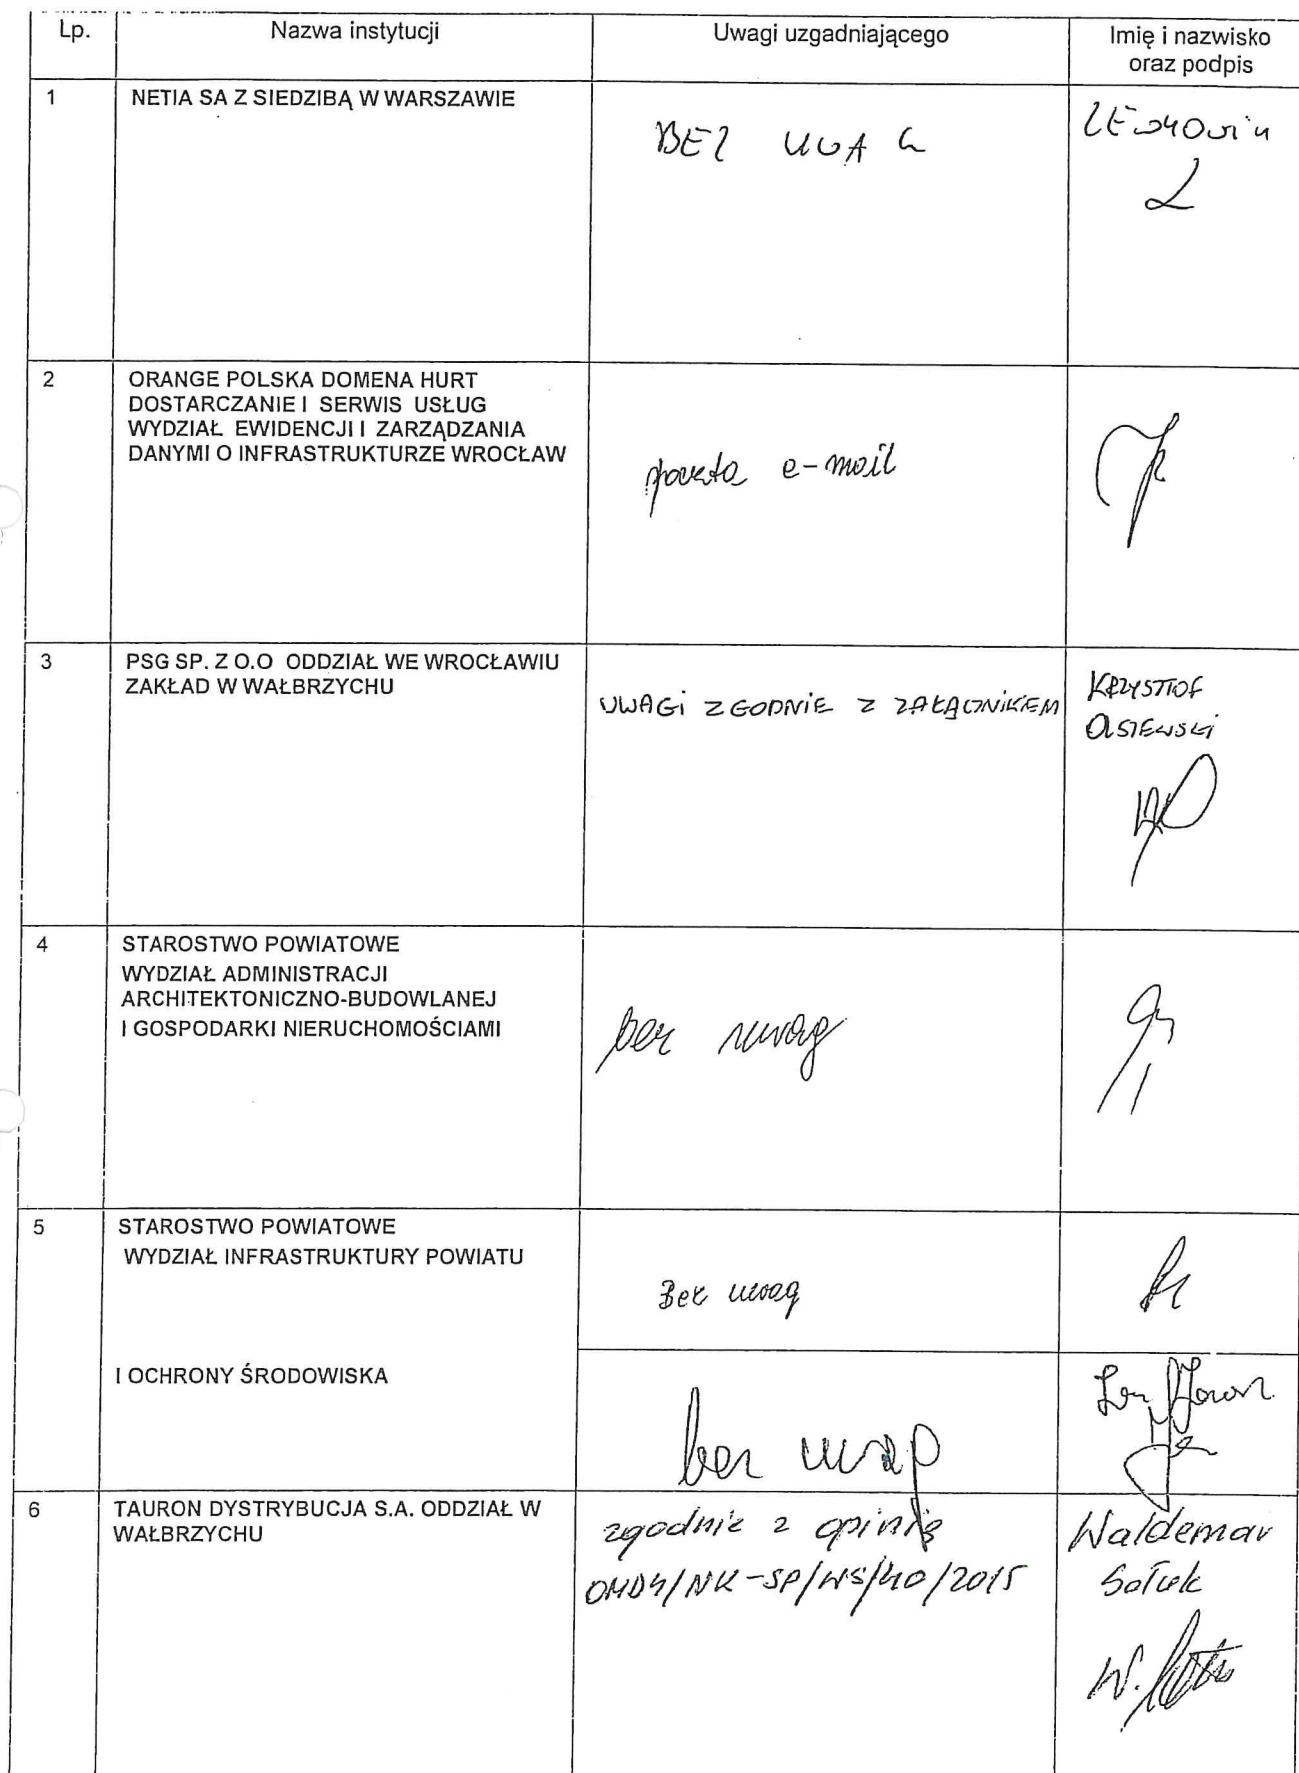 Lp.
Nazwa instytucji
Uwagi uzgadniającego
Imię i nazwisko
oraz podpis
1
NETIA SA Z SIEDZIBĄ W WARSZAWIE
BEZ UWAG
2
ORANGE POLSKA DOMENA HURT
DOSTARCZANIE I SERWIS USŁUG
WYDZIAŁ EWIDENCJI I ZARZĄDZANIA
DANYMI O INFRASTRUKTURZE WROCŁAW
poczta e-mail
3
PSG SP. Z O.O ODDZIAŁ WE WROCŁAWIU
ZAKŁAD W WAŁBRZYCHU
UWAGI ZGODNIE Z ZAŁĄCZNIKEM
KRZYSZTOF
4
STAROSTWO POWIATOWE
WYDZIAŁ ADMINISTRACJI
ARCHITEKTONICZNO-BUDOWLANEJ
I GOSPODARKI NIERUCHOMOŚCIAMI
bez uwag
5
STAROSTWO POWIATOWE
WYDZIAŁ INFRASTRUKTURY POWIATU
Bez uwag
I OCHRONY ŚRODOWISKA
bez uwag
6
TAURON DYSTRYBUCJA S.A. ODDZIAŁ W
WAŁBRZYCHU
zgodnie z opinią
OMD4/NK-SP/WS/40/2015
Waldemar
W.